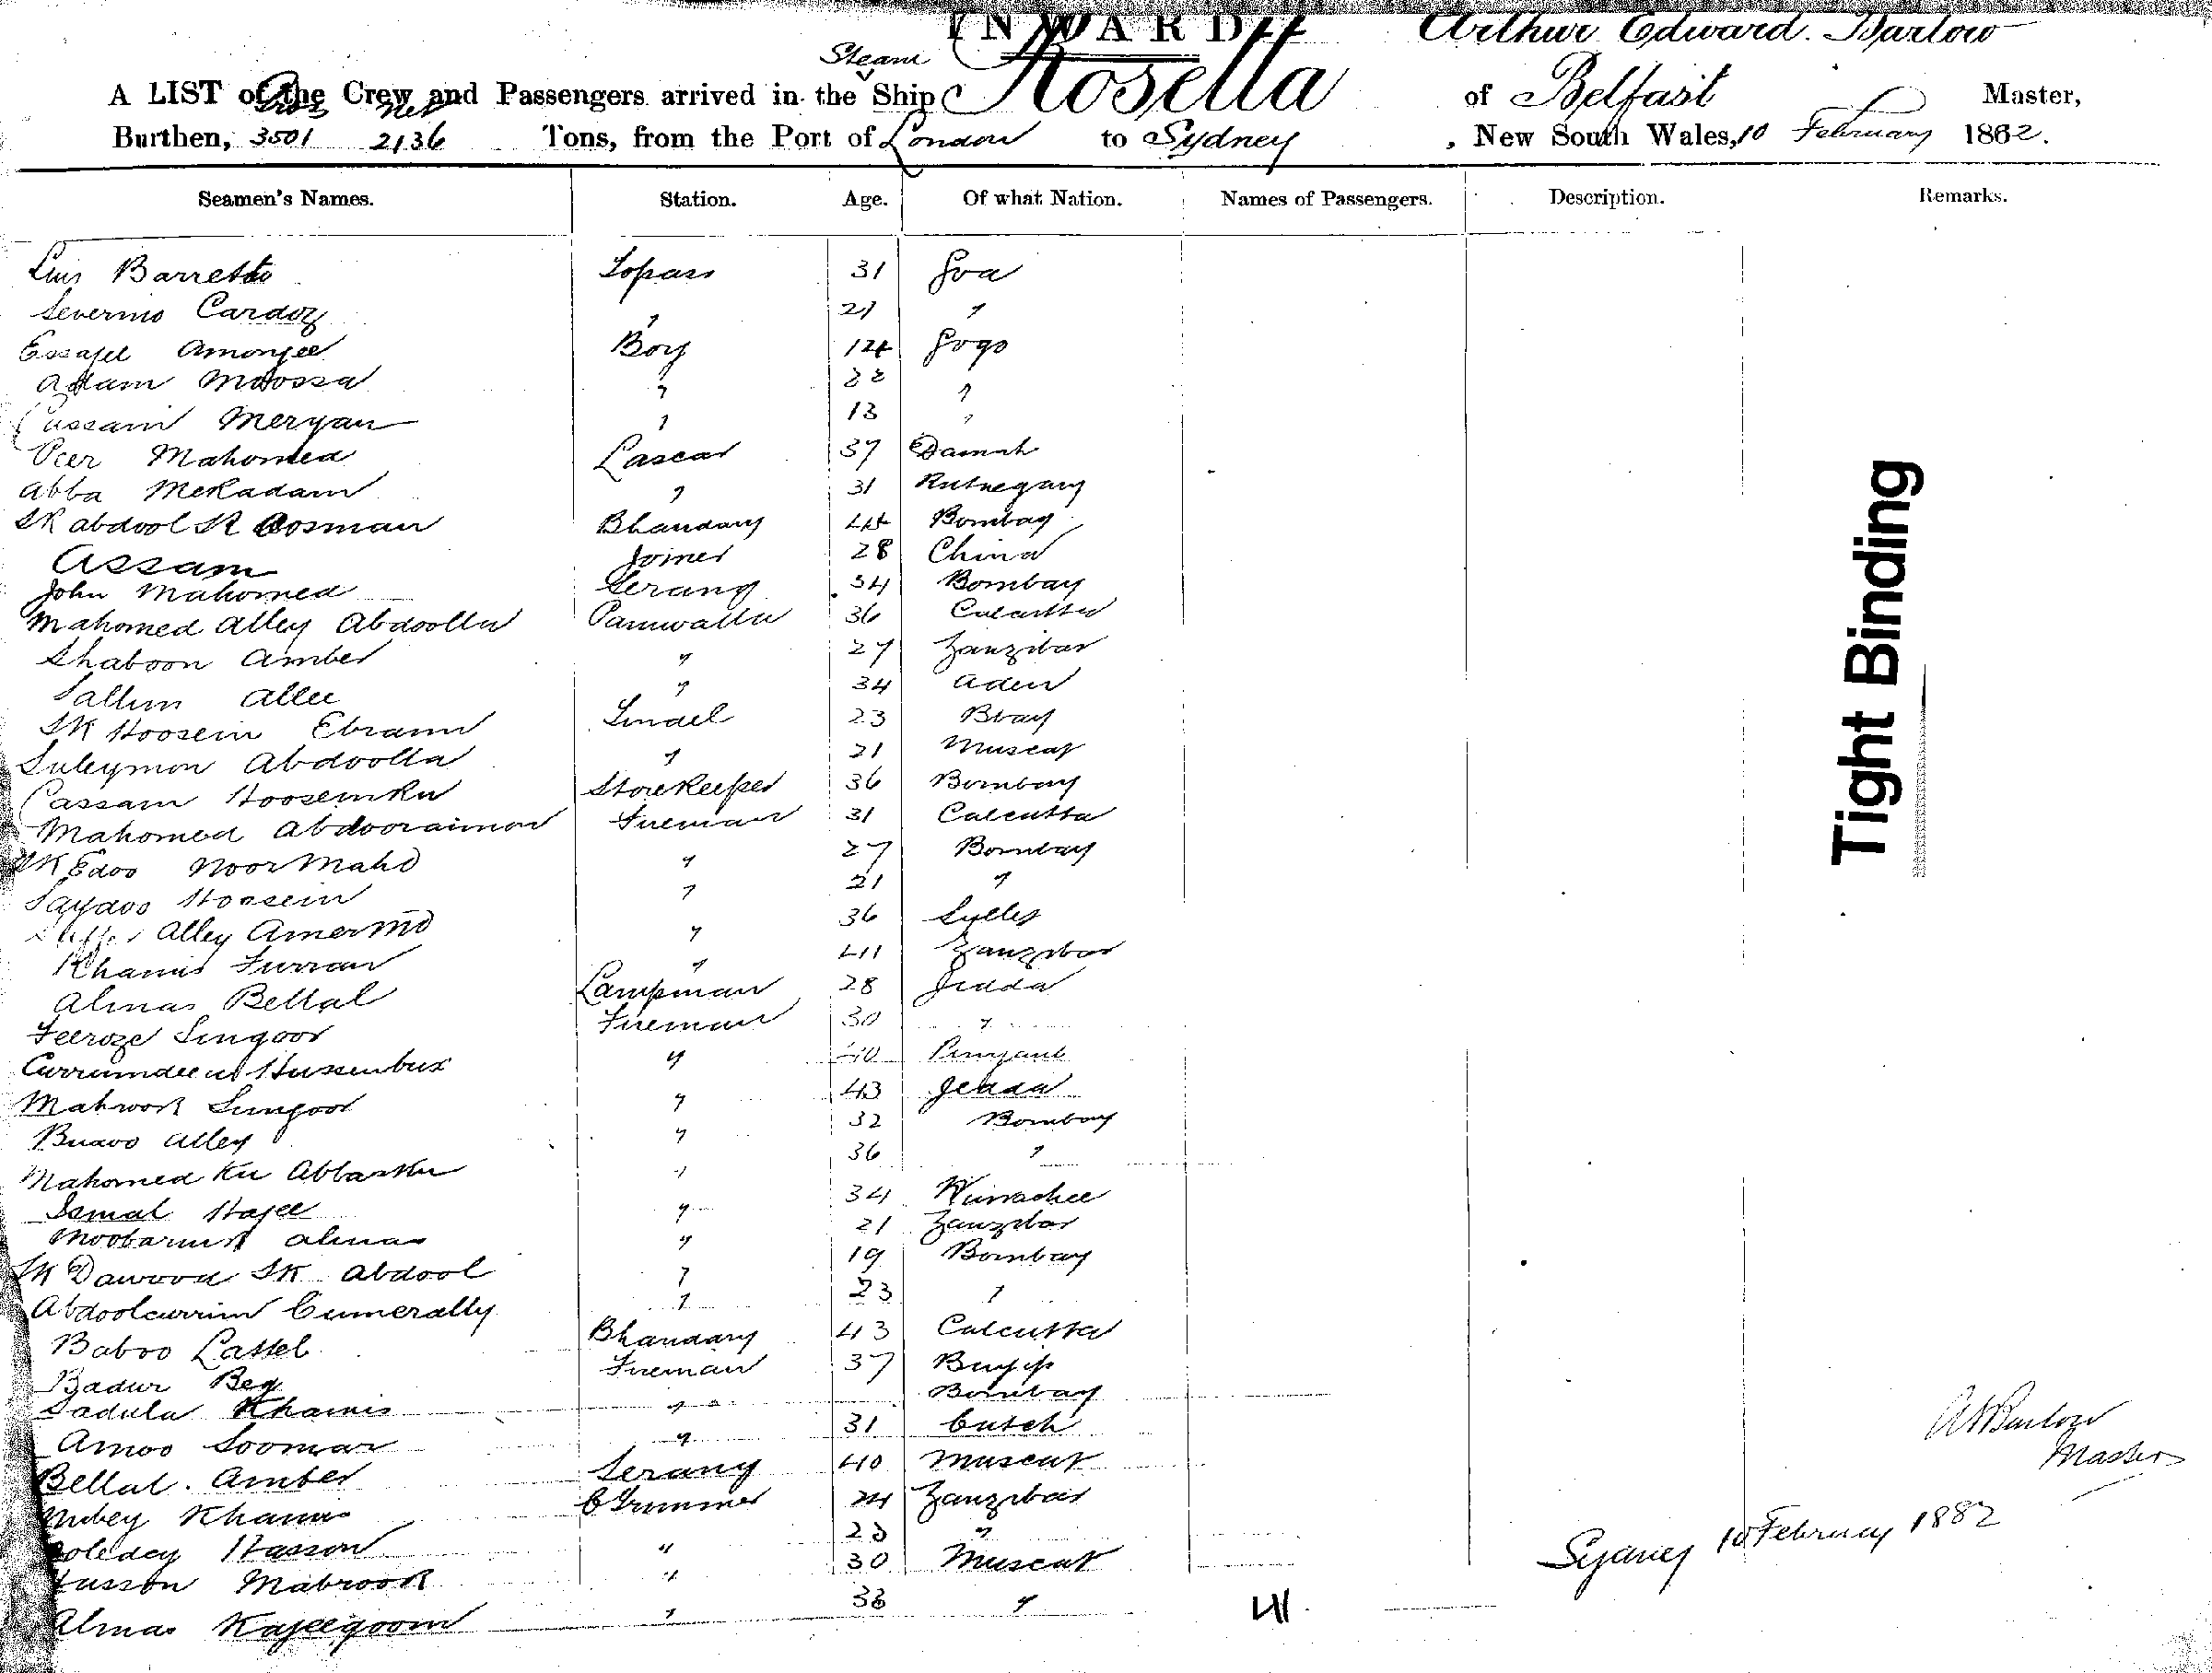 INWARD
Arthur Edward. Barlow
A LIST of the Crew and Passengers arrived in the Steam Ship Rosella of Belfast Master,
Gros Net
Burthen, 3501 2136 Tons, from the Port of London to Sydney , New South Wales, 10 February 1882.
Seamen's Names. Station. Age. Of what Nation. Names of Passengers. Description. Remarks.
Luis Barretto Topass 31 Goa
Severino Cardoz " 21 "
Essajel Amonjee Boy 14 Gogo
Adam Moossa " "
Cassam Meryan " 13 "
Peer Mahomed Lascar 37 Damah
Abba Mekadam " 31 Rutnegary
SK abdool SK Oosman Bhandary 44 Bombay
Assam Joiner 28 China
John Mahomed Serang 34 Bombay
Mahomed Alley Abdoolla Paniwalla 36 Calcutta
Shaboon Amber " 27 Zanzibar
Sallim Allee " 34 Aden
SK Hoosein Ebraim Tindel 23
Suleymon Abdoolla " 21 Muscat
Cassam Hoosemkn Storekeeper 36 Bombay
Mahomed Abdooraimon Fireman 31 Calcutta
SK Edoo Noor Mahd " 27 Bombay
Saydoo Hoosein " 21 "
Alley Amer Md " 36
Khamis Furran " 41 Zanzibar
Almas Bellal Lampman 28 Jedda
Feeroze Sungoor Fireman 30 "
Curreemdeen Hussenbux " 40 Punjaub
Mahwork Sungoor " 43 Jedda
Buavo Alley " 32 Bombay
Mahomed Kn Abbaskn " 36 "
Ismal Hajee " 34 Kurrachee
Moobaruk Almas " 21 Zanzibar
SK Dawood SK Abdool " 19 Bombay
Abdoolcurrim Cumerally " 23 "
Baboo Lattel Bhandary 43 Calcutta
Badur Beg Fireman 37
Sadula Khamis " Bombay
Amoo Soomar " 31 Cutch
Bellal. Amber Serang 40 Muscat
Khamis C Trimmer 24 Zanzibar
Hasson " 23 "
Husson Mabrook " 30 Muscat
Almas Kajeegoom " 38 "
41.
Tight Binding
AE Barlow
Master
Sydney 10 February 1882